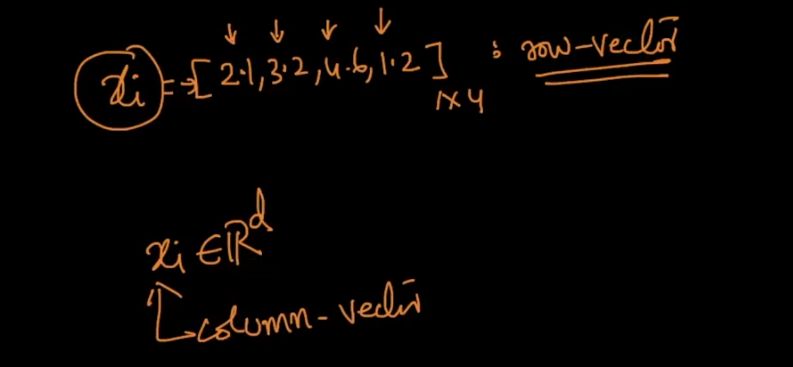 xi => [2.1, 3.2, 4.6, 1.2] 1x4 : row-vector
xi ∈ ℝ^d
column-vector